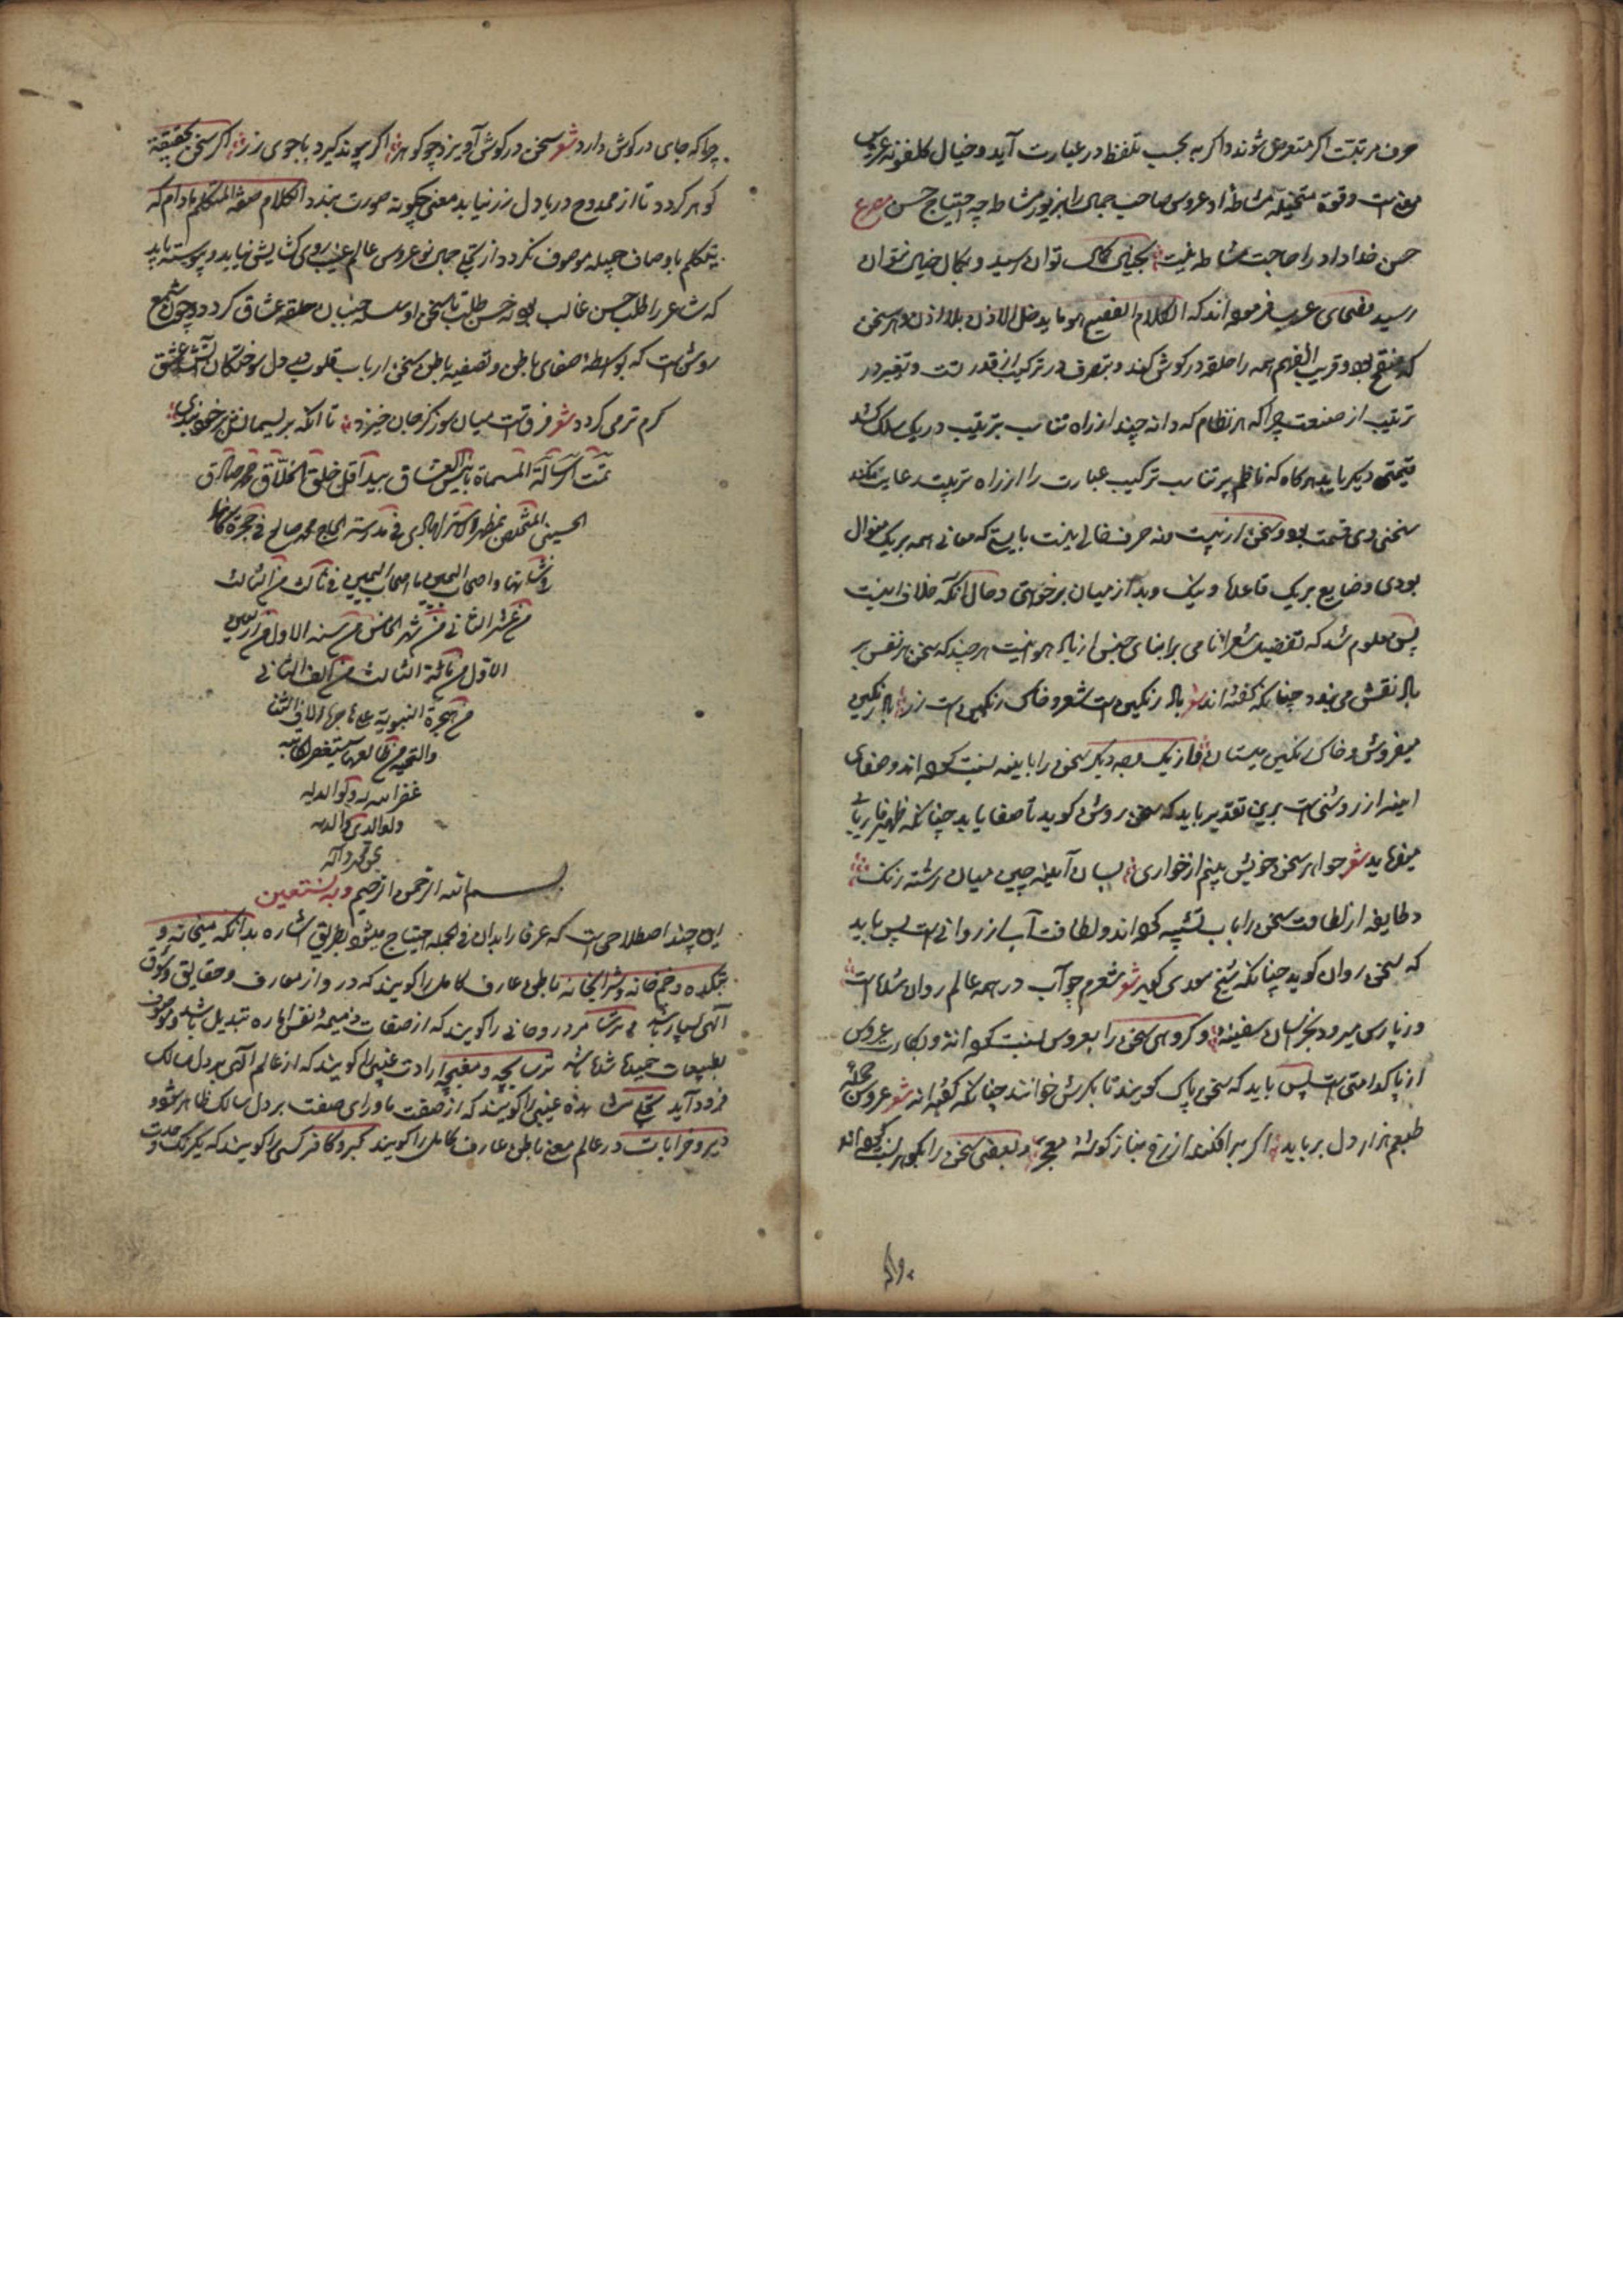 حرف مرتبت اکر متعرض شوند و اکر به بحسب تلفظ در عبارت آید و خیال کلفونه عروس
معنی است و قوة متخیله مشاطهٔ او عروس صاحب جمال را بزیور مشاطه چه احتیاج حسن مصرع
حسن خداداد را حاجت مشاطه نیست بخیالی کمال توان رسید و بکمال خیال نتوان
رسید فصحای عرب فرموده اند که الکلام الفصیح هو ما یدخل الاذن بلا اذن و هر سخن
که منقح بود و قریب الفهم همه را حلقه در کوش کند و تصرف در ترکیب از قدرتست و تغییر در
ترتیب از صنعت چرا که هر نظام که دانه چند از راه تناسب بترتیب در یک سلک کشد
قیمتی دیکر یابد هر کاه که ناظم پر تناسب ترکیب عبارت را از راه تربیت رعایت نکند
سخن وی قسمت بود و سخن از نیست منه حرف خالی نیست بایستی که معانی همه بر یک منوال
بودی و ضایع بر یک قاعده و نیک و بد از میان برخواستی و حال آنکه خلاف اینست
پس معلوم شد که تفضیل شعرا نامی بر ابنای جنس از یاد هوا نیست هر چند که سخن بر نفس
باد نقش می بندد چنانکه کفته اند شعر باد رنکین است شعر و خاک رنکین است زر باد رنکین
میفروش و خاک رنکین میستان و از یک وجه دیکر سخن را بآینه نسبت کرده اند و صفای
آینه از روشنی است برین تقدیر باید که سخن روشن کوید تا صفا یابد چنانکه ظهیر فاریابی
میفرماید شعر جواهر سخن خویش بینم از خواری بسان آینه چین میان رشته زنک
و طایفه از لطافت سخن را بآب تشبیه کرده اند و لطافت آب از روانی است پس باید
که سخن روان کوید چنانکه شیخ سعدی کوید شعر شعرم چو آب در همه عالم روان شده است
وز پارس میرود بخراسان سفینه و کروهی سخن را بعروس نسبت کرده اند و بکارت عروس
از پاکدامنی است پس باید که سخن پاک کویند تا بکرش خوانند چنانکه کفته اند شعر عروس حجلهٔ
طبعم هزار دل برباید اکر برافکند از رخ بناز کوشهٔ معجر و بعضی سخن را بکوهر نسبت کرده اند
چرا که جای در کوش دارد شعر سخن در کوش آویزد چو کوهر اکر پیوند کیرد با جوی زر اکر سخن بحقیقت
کوهر کردد تا از ممدوح دریا دل زر نیاید معنی چکونه صورت بندد الکلام صفة المتکلم مادام که
متکلم باوصاف جمیله موصوف نکردد از تجلی جمال نو عروس عالم غیب روی کشایش نیابد و پیوسته باید
که شاعر را طلب حسن غالب بود نه حسن طلب تا سخن او سلسله جنبان حلقه عشاق کردد و چون شمع
روشن است که بواسطه صفای باطن و تصفیه باطن سخن ارباب قلوب در دل سوختکان آتش عشق
کرم تر می کردد شعر فرق است میان سوز کز جان خیزد تا آنکه بریسمانش بر خود بندی
تمت الرسالة المسماة بانیس العشاق بید اقل خلق الخلاق محمد صادق
الحسینی المتخلص بمظهر الاسترابادی فی مدرسة الحاج محمد صالح فی حجرة
و اصحاب الیمین ما اصحاب الیمین فی ثالث من الثالث
من عشر الثانی من شهر الخامس من سنة الاول من اربعین
الاول من مائة الثالث من الف الثانی
من هجرة النبویة علی هاجرها الاف الثنا
والتحیة
غفر الله له و لوالدیه
و لوالدی والدیه
بحق محمد و آله
بسم الله الرحمن الرحیم و به نستعین
این چند اصطلاحی است که عرفا را بدان فی الجمله احتیاج میشود بطریق اشاره بدانکه میخانه و
بتکده و خمخانه و شرابخانه باطن عارف کامل را کویند که در و از معارف و حقایق و ذوق
الهی بسیار باشد ترسا مرد روحانی را کویند که از صفات ذمیمه نفس اماره تبدیل یافته باشد و موصوف
بصفات حمیده شده باشد ترسا بچه و مغبچه ارادت غیبی را کویند که از عالم الهی بر دل سالک
فرود آید تجلی مشاهده غیبی را کویند که از صفت ماورای صفت بر دل سالک ظاهر شود
دیر و خرابات در عالم معنی باطن عارف کامل را کویند کبر و کافر کسی را کویند که یکرنک وحدت